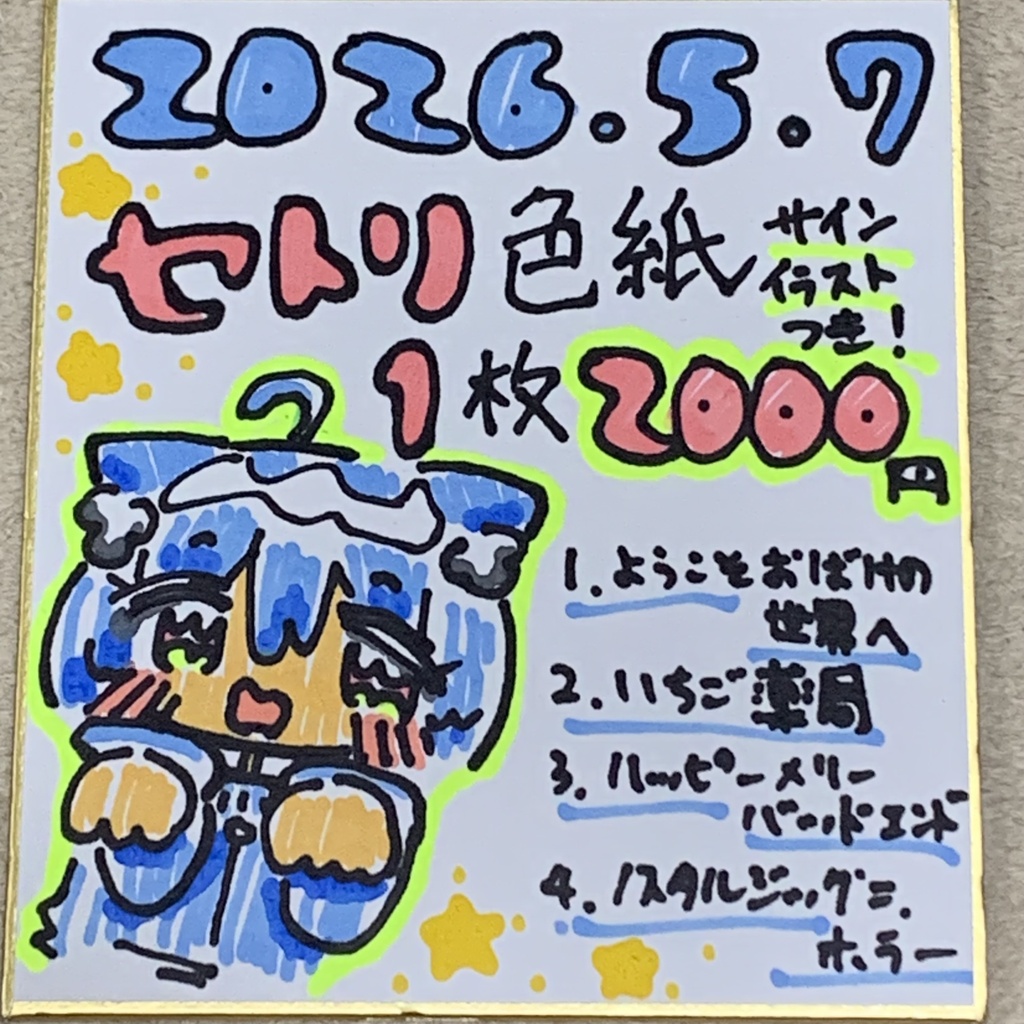 2026.5.7
セトリ色紙
サイン
イラスト
つき!
1枚2000円
1.ようこそおばけの
世界へ
2.いちご薬局
3.ハッピーメリー
バッドエンド
4.ノスタルジックニ.
ホラー